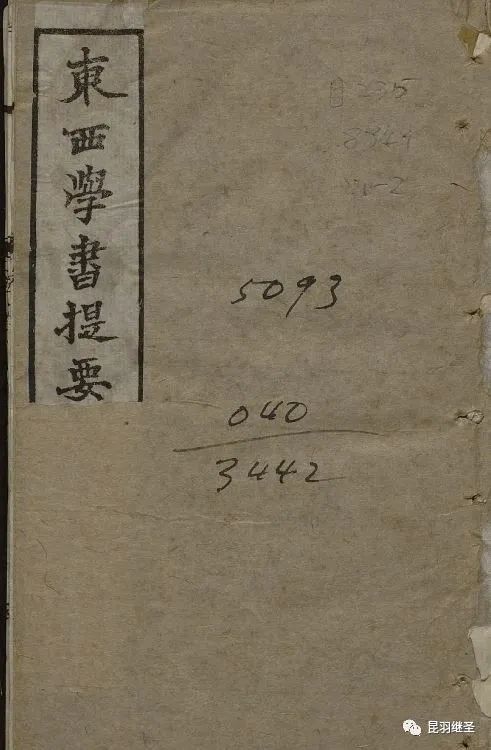 東西學書提要
5093
040
3442
昆羽继圣